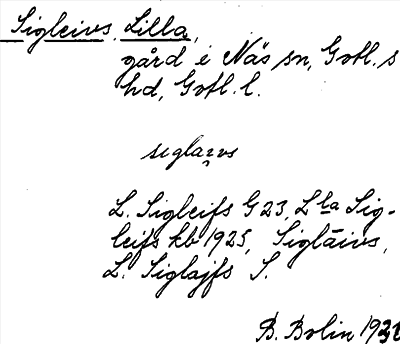 Sigleivs, Lilla,
gård i Näs sn, Gotl. s
hd, Gotl. l.
siglaivs
L. Sigleifs G 23, L:la Sig-
leifs kb 1925, Sigläivs,
L. Siglajfs S.
B. Bolin